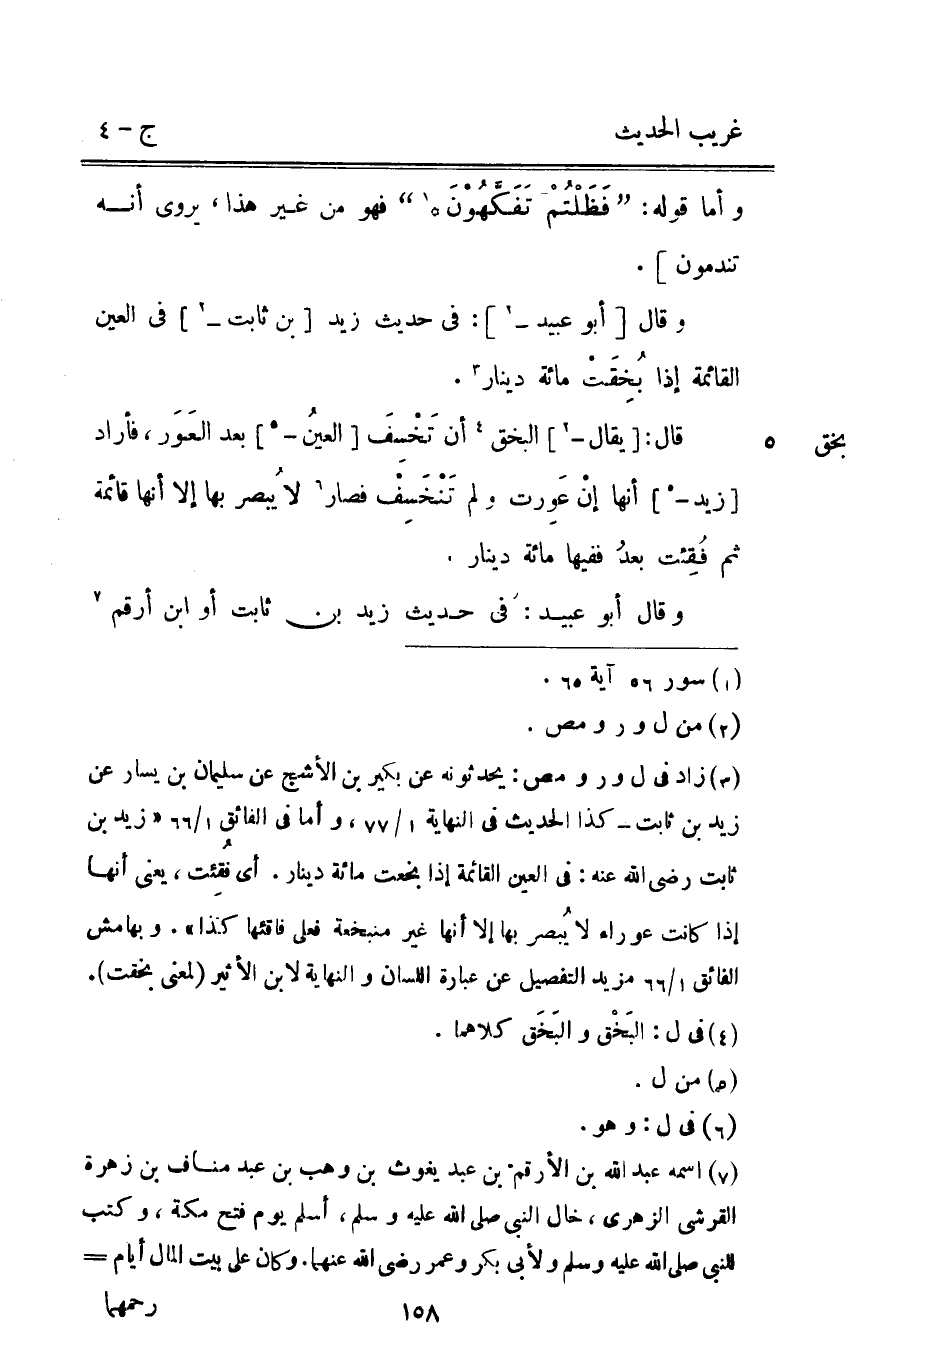 غريب الحديث ج – ٤
و أما قوله: ” فَظَلْتُمْ تَفَكَّهُوْنَ ه١ “ فهو من غير هذا، يروى أنه
تندمون ] .
و قال [ أبو عبيد –٢ ] : فى حديث زيد [ بن ثابت –٢ ] فى العين
القائمة إذا بُخِقَتْ مائة دينار٣ .
بخق ٥ قال: [ يقال –٢ ] البخق٤ أن تَخْسِفَ [ العينُ –٥ ] بعد العَوَر ، فأراد
[ زيد –٥ ] أنها إنْ عَوِرت و لم تَنْخَسِفْ فصار٦ لا يُبصر بها إلا أنها قائمة
ثم فُقِئت بعدُ ففيها مائة دينار .
و قال أبو عبيد : فى حديث زيد بن ثابت أو ابن أرقم٧
(١) سور ٥٦ آية ٦٥ .
(٢) من ل و ر و مص .
(٣) زاد فى ل و ر و مص : يحدثونه عن بكير بن الأشج عن سليمان بن يسار عن
زيد بن ثابت – كذا الحديث فى النهاية ١/ ٧٧ ، و أما فى الفائق ١/ ٦٦ « زيد بن
ثابت رضى الله عنه : فى العين القائمة إذا بخعت مائة دينار . أى فُقِئت ، يعنى أنها
إذا كانت عوراء لا يُبصر بها إلا أنها غير منبخعة فعلى فاقئها كذا » . و بهامش
الفائق ١/ ٦٦ مزيد التفصيل عن عبارة اللسان و النهاية لابن الأثير (لمعنى بخقت).
(٤) فى ل : البَخْق و البَخَق كلاهما .
(٥) من ل .
(٦) فى ل : و هو .
(٧) اسمه عبد الله بن الأرقم بن عبد يغوث بن وهب بن عبد مناف بن زهرة
القرشى الزهرى ، خال النبي صلى الله عليه و سلم ، أسلم يوم فتح مكة ، و كتب
للنبي صلى الله عليه و سلم و لأبي بكر و عمر رضى الله عنهما . و كان على بيت المال أيام =
١٥٨ رحمهما